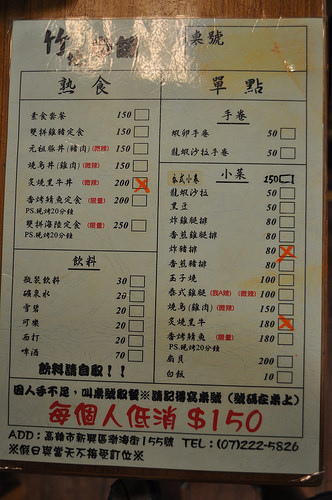 竹
桌號
熟食
素食套餐 150
雙拼雞豬定食 150
元祖豚丼(豬肉)(微辣) 150
燒鳥丼(雞肉)(微辣) 150
炙燒黑牛丼 (微辣) 200
香烤鯖魚定食(限量) 200
PS.現烤20分鐘
雙拼海陸定食(限量) 250
PS.現烤20分鐘
飲料
瓶裝飲料 30
礦泉水 20
雪碧 20
可樂 20
西打 20
啤酒 70
飲料請自取!!
單點
手卷
蝦卵手卷 50
龍蝦沙拉手卷 50
小菜
泰式小卷 150
龍蝦沙拉 50
黑豆 50
炸雞腿排 80
香煎雞腿排 80
炸豬排 80
香煎豬排 80
玉子燒 100
泰式雞腿 (微辣) 100
燒鳥(雞肉) (微辣) 150
炙燒黑牛 180
香烤鯖魚 (限量) 180
PS.現烤20分鐘
扇貝 200
白飯 10
因人手不足,叫桌號取餐※請記得寫桌號(號碼在桌上)
每個人低消 $150
ADD:高雄市新興區渤海街155號 TEL:(07)222-5826
※假日與當天不接受訂位※